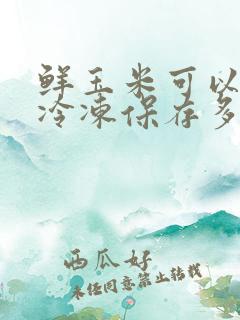 鲜玉米可以
冷凍保存多
西瓜好
未经同意禁止转载